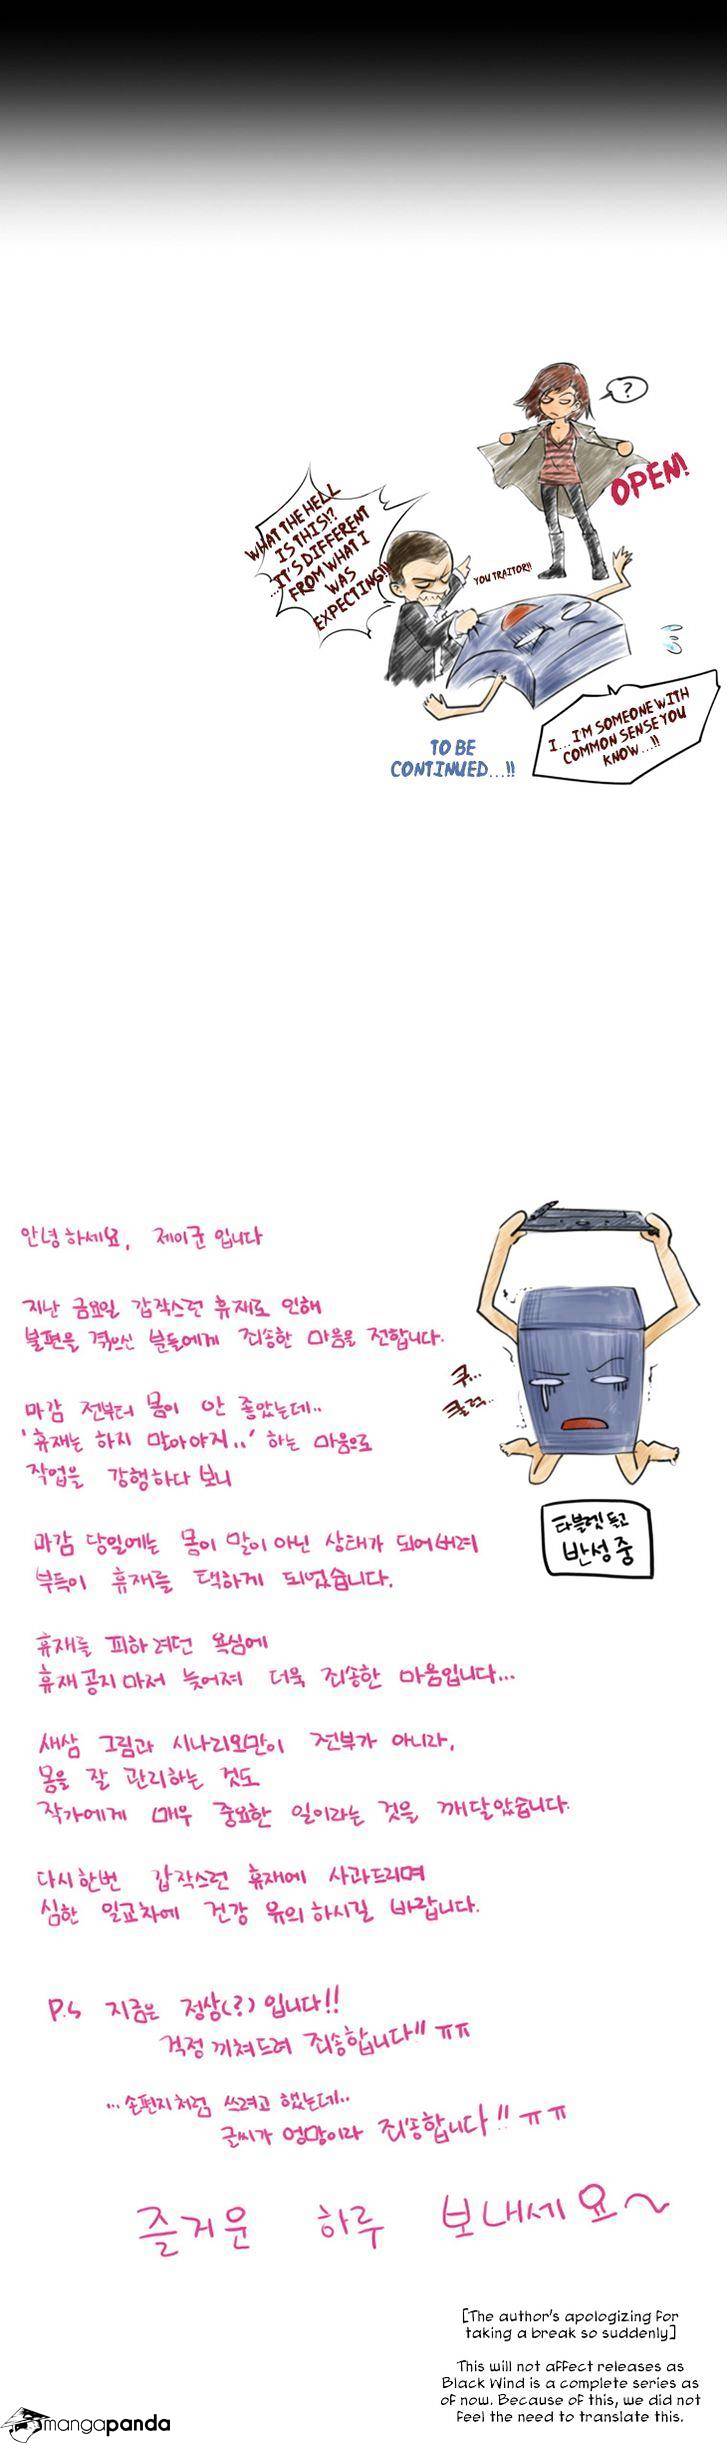 ?
OPEN!
WHAT THE HELL
IS THIS!?
...IT'S DIFFERENT
FROM WHAT I
WAS
EXPECTING!!!
YOU TRAITOR!!
I...I'M SOMEONE WITH
COMMON SENSE YOU
KNOW...!!
TO BE
CONTINUED...!!
안녕하세요, 제이군입니다
지난 금요일 갑작스런 휴재로 인해
불편을 겪으신 분들에게 죄송한 마음을 전합니다.
쿠...
쿨럭...
마감 전부터 몸이 안 좋았는데..
'휴재는 하지 말아야지..' 하는 마음으로
작업을 강행하다 보니
타블렛 들고
반성중
마감 당일에는 몸이 말이 아닌 상태가 되어버려
부득이 휴재를 택하게 되었습니다.
휴재를 피하려던 욕심에
휴재공지마저 늦어져 더욱 죄송한 마음입니다...
새삼 그림과 시나리오만이 전부가 아니라,
몸을 잘 관리하는 것도
작가에게 매우 중요한 일이라는 것을 깨달았습니다.
다시한번 갑작스런 휴재에 사과드리며
심한 일교차에 건강 유의하시길 바랍니다.
P.S 지금은 정상(?)입니다!!
걱정끼쳐드려 죄송합니다!! ㅠㅠ
...손편지처럼 쓰려고 했는데..
글씨가 엉망이라 죄송합니다!! ㅠㅠ
즐거운 하루 보내세요~
[The author's apologizing for
taking a break so suddenly]
This will not affect releases as
Black Wind is a complete series as
of now. Because of this, we did not
feel the need to translate this.
mangapanda